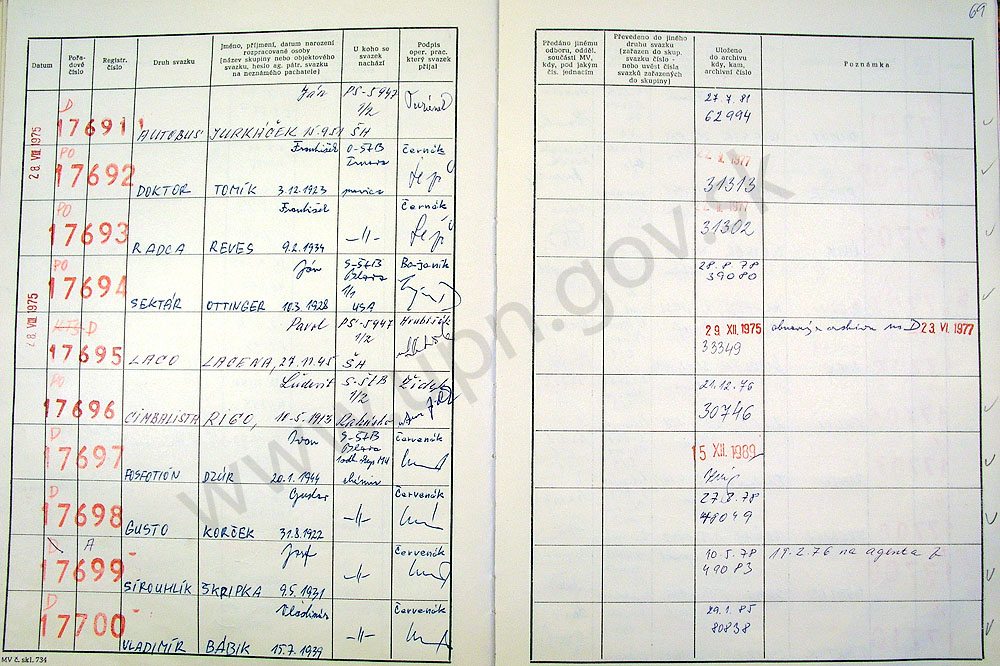 69
Datum
Pořa-
dové
číslo
Registr.
číslo
Druh svazku
Jméno, příjmení, datum narození
rozpracované osoby
(název skupiny nebo objektového
svazku, heslo ag. pátr. svazku
na neznámého pachatele)
U koho se
svazek
nachází
Podpis
oper. prac.
který svazek
přijal
Předáno jinému
odboru, odděl.
součásti MV,
kdy, pod jakým
čís. jednacím
Převedeno do jiného
druhu svazku
(zařazen do skup.
svazku číslo -
nebo uvést čísla
svazků zařazených
do skupiny)
Uloženo
do archivu
kdy, kam,
archivní číslo
Poznámka
28. VIII. 1975
D
17691
AUTOBUS
Ján
JURKÁČEK
PS-5947
1/2
ŠH
27.7.81
62994
PO
17692
DOKTOR
František
TOMÍK 3.12.1923
O-ŠtB
Trnava
černák
1977
31313
PO
17693
RADCA
František
REVES 9.2.1934
-11-
černák
1977
31302
PO
17694
SEKTÁR
Ján
OTTINGER 10.3.1928
S-ŠtB
1/1
USA
28.8.78
39080
28. VIII. 1975
D
17695
LACO
Pavol
LACENA, 27.11.45
PS-5947
1/2
ŠH
29. XII. 1975
33349
23. VI. 1977
PO
17696
CIMBALISTA
RIGO,
S-ŠtB
1/2
21.12.76
30746
D
17697
Ivan
DZÚR 20.1.1944
S-ŠtB
červenák
15. XII. 1989
D
17698
GUSTO
KORČEK 31.8.1922
-11-
červenák
27.3.78
48049
A
17699
STROUHLÍK
Jozef
ŠKRIPKA 9.5.1931
-11-
červenák
10.5.78
49083
19.2.76 na agenta
D
17700
VLADIMÍR
Vladimír
BÁBIK 15.7.1939
-11-
červenák
29.1.85
80838
MV č. skl. 734
www.upn.gov.sk